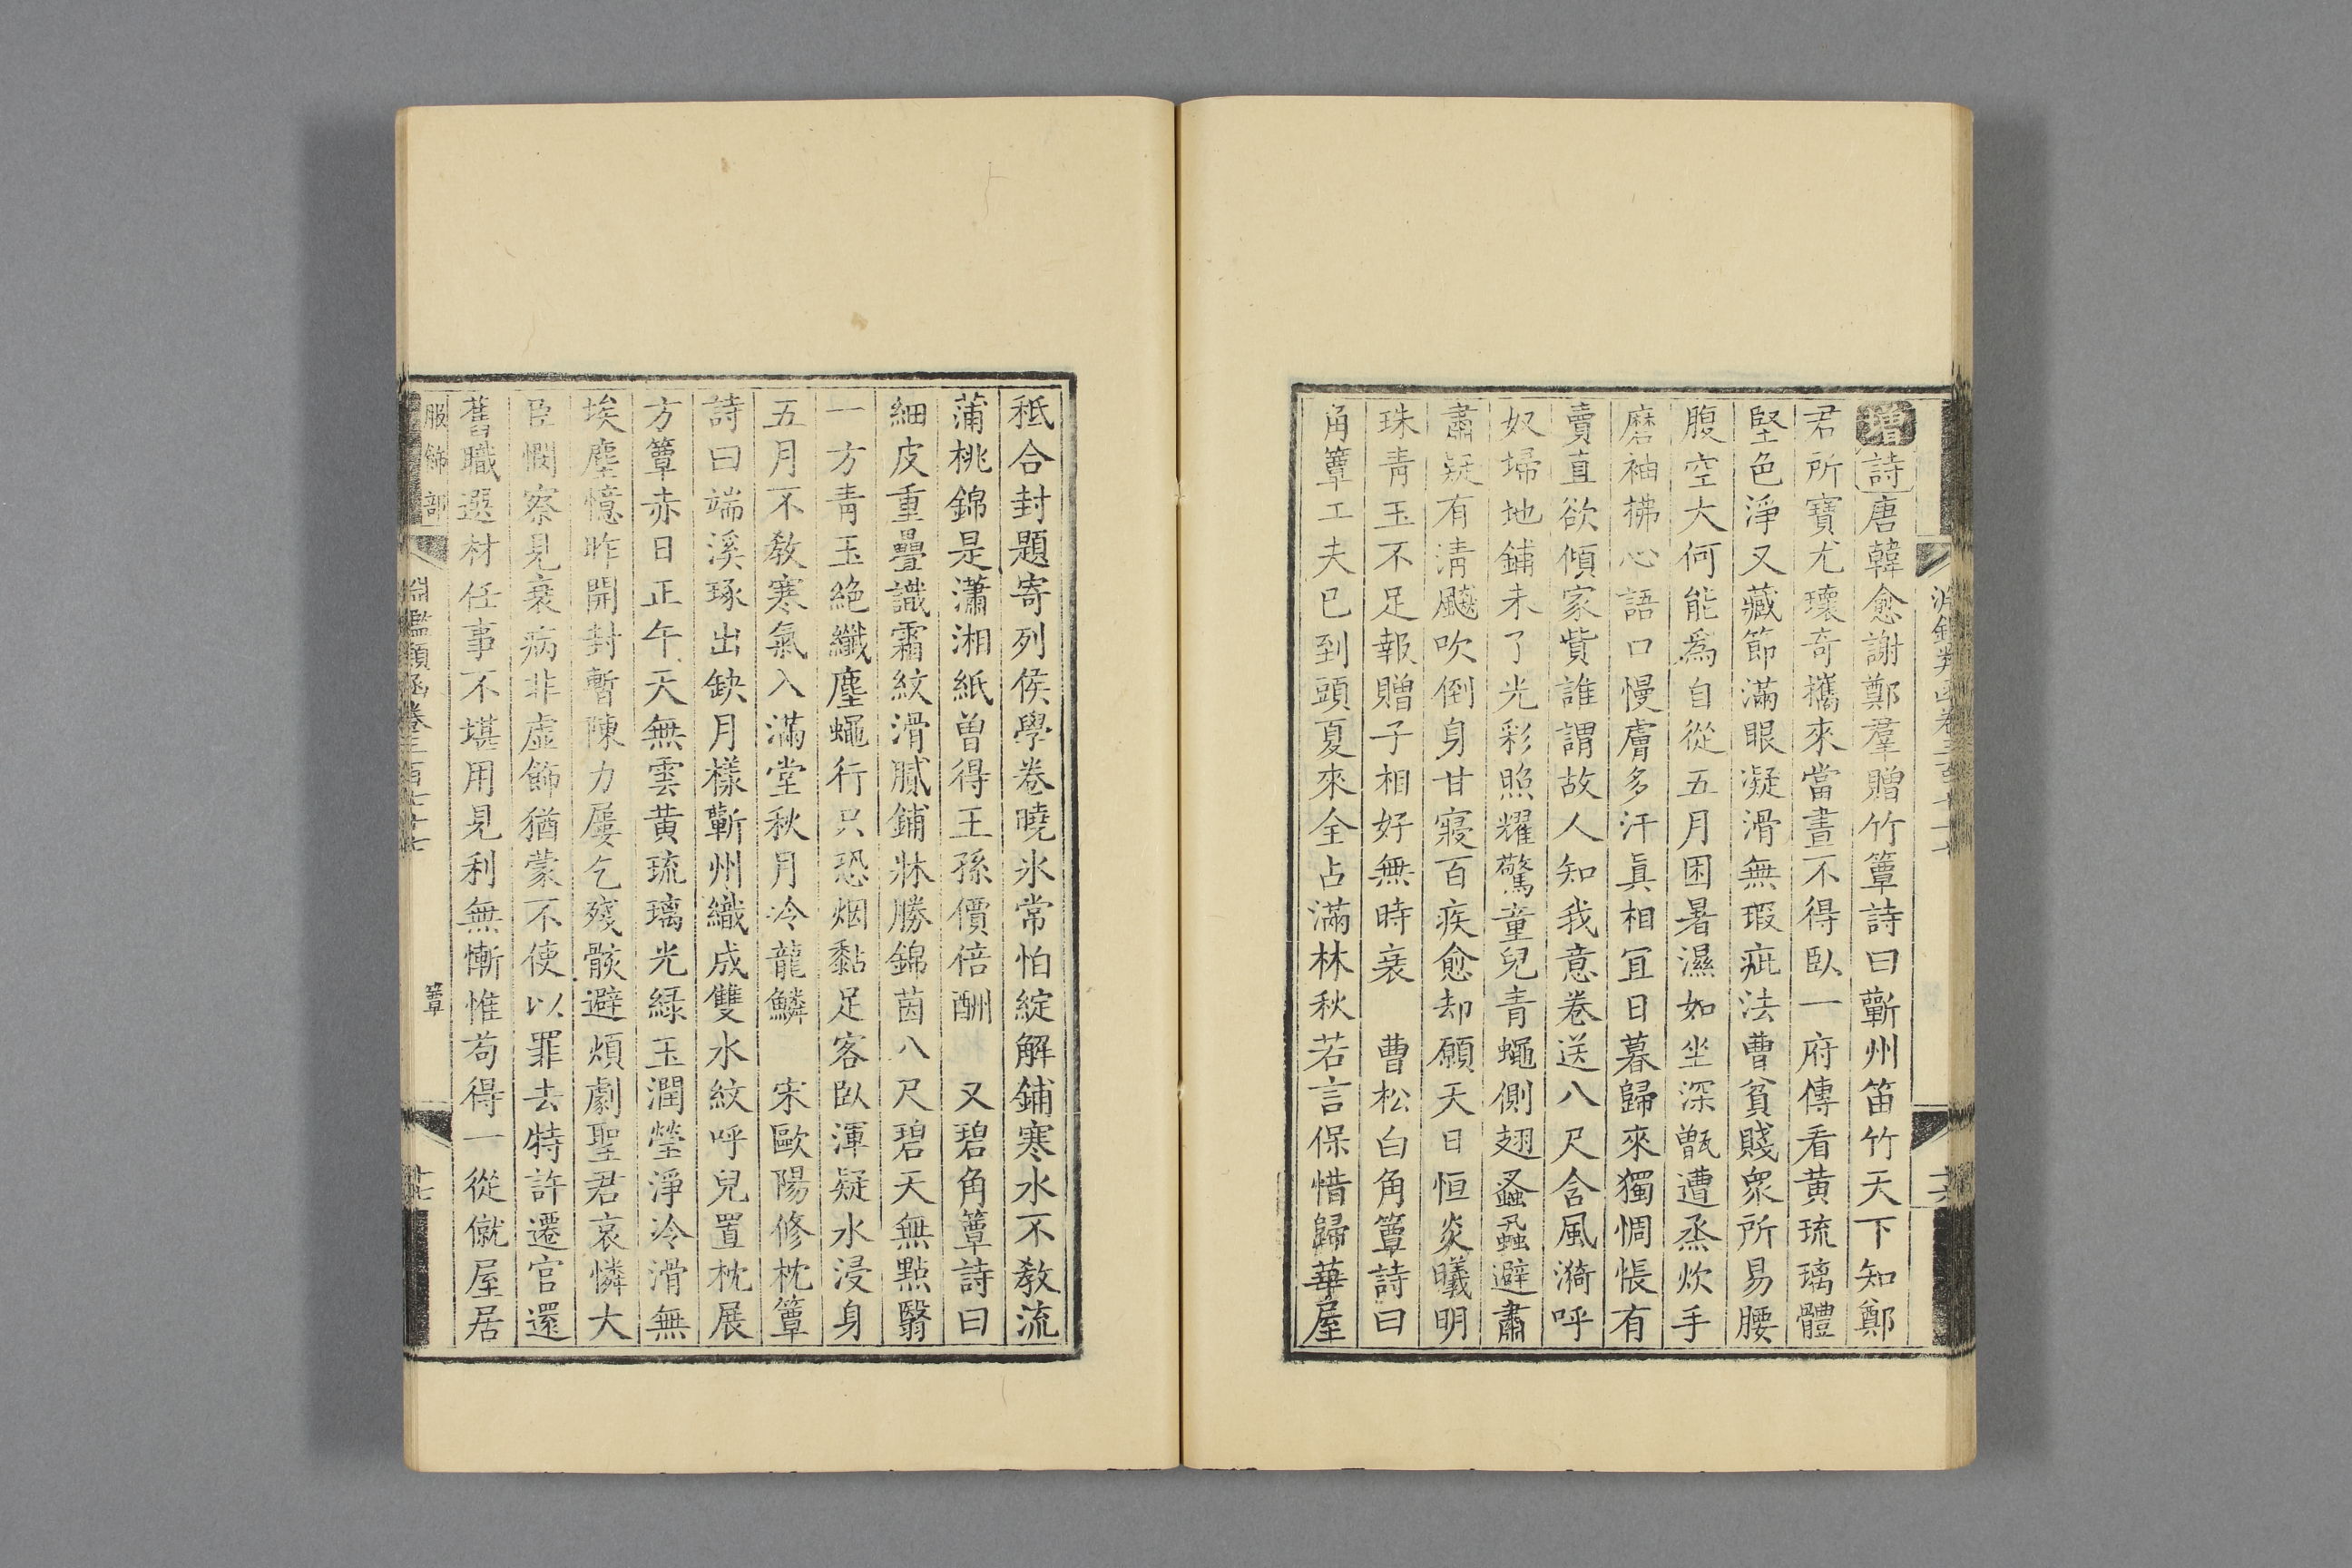 增詩唐韓愈謝鄭羣贈竹簟詩曰蘄州笛竹天下知鄭
君所寶尤瓌奇攜來當晝不得臥一府傳看黃琉璃體
堅色淨又藏節滿眼凝滑無瑕疵法曹貧賤衆所易腰
腹空大何能爲自從五月困暑濕如坐深甑遭烝炊手
磨袖拂心語口慢膚多汗眞相宜日暮歸來獨惆悵有
賣直欲傾家貲誰謂故人知我意卷送八尺含風漪呼
奴埽地鋪未了光彩照耀驚童兒青蠅側翅蚤蝨避肅
肅疑有清飇吹倒身甘寢百疾愈却願天日恒炎曦明
珠青玉不足報贈子相好無時衰 曹松白角簟詩曰
角簟工夫已到頭夏來全占滿林秋若言保惜歸華屋
秪合封題寄列侯學卷曉冰常怕綻解鋪寒水不敎流
蒲桃錦是瀟湘紙曾得王孫價倍酬 又碧角簟詩曰
細皮重疊識霜紋滑膩鋪牀勝錦茵八尺碧天無點翳
一方青玉絶纖塵蠅行只恐烟黏足客臥渾疑水浸身
五月不敎寒氣入滿堂秋月冷龍鱗 宋歐陽修枕簟
詩曰端溪琢出缺月樣蘄州織成雙水紋呼兒置枕展
方簟赤日正午天無雲黃琉璃光綠玉潤瑩淨冷滑無
埃塵憶昨開封暫陳力屢乞殘骸避煩劇聖君哀憐大
臣憫察見衰病非虛飾猶蒙不使以罪去特許遷官還
舊職選材任事不堪用見利無慚惟苟得一從僦屋居
服飾部 淵鑑類函卷三百七十七 簟 十七